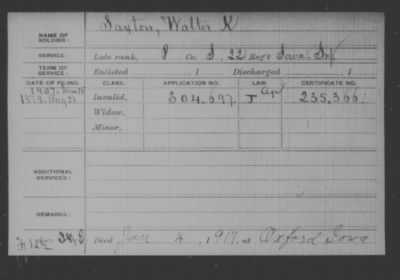 NAME OF SOLDIER: Saxton, Walter K
SERVICE: Late rank, P Co. I, 22 Reg't Iowa Inf.
TERM OF SERVICE: Enlisted , 1 Discharged , 1
DATE OF FILING. CLASS. APPLICATION NO. LAW. CERTIFICATE NO.
1907.
1879. Aug 21 Invalid, 304.697 I 235.366
Widow,
Minor,
ADDITIONAL SERVICES:
REMARKS:
Died Jan 4, 1917, at Oxford Iowa